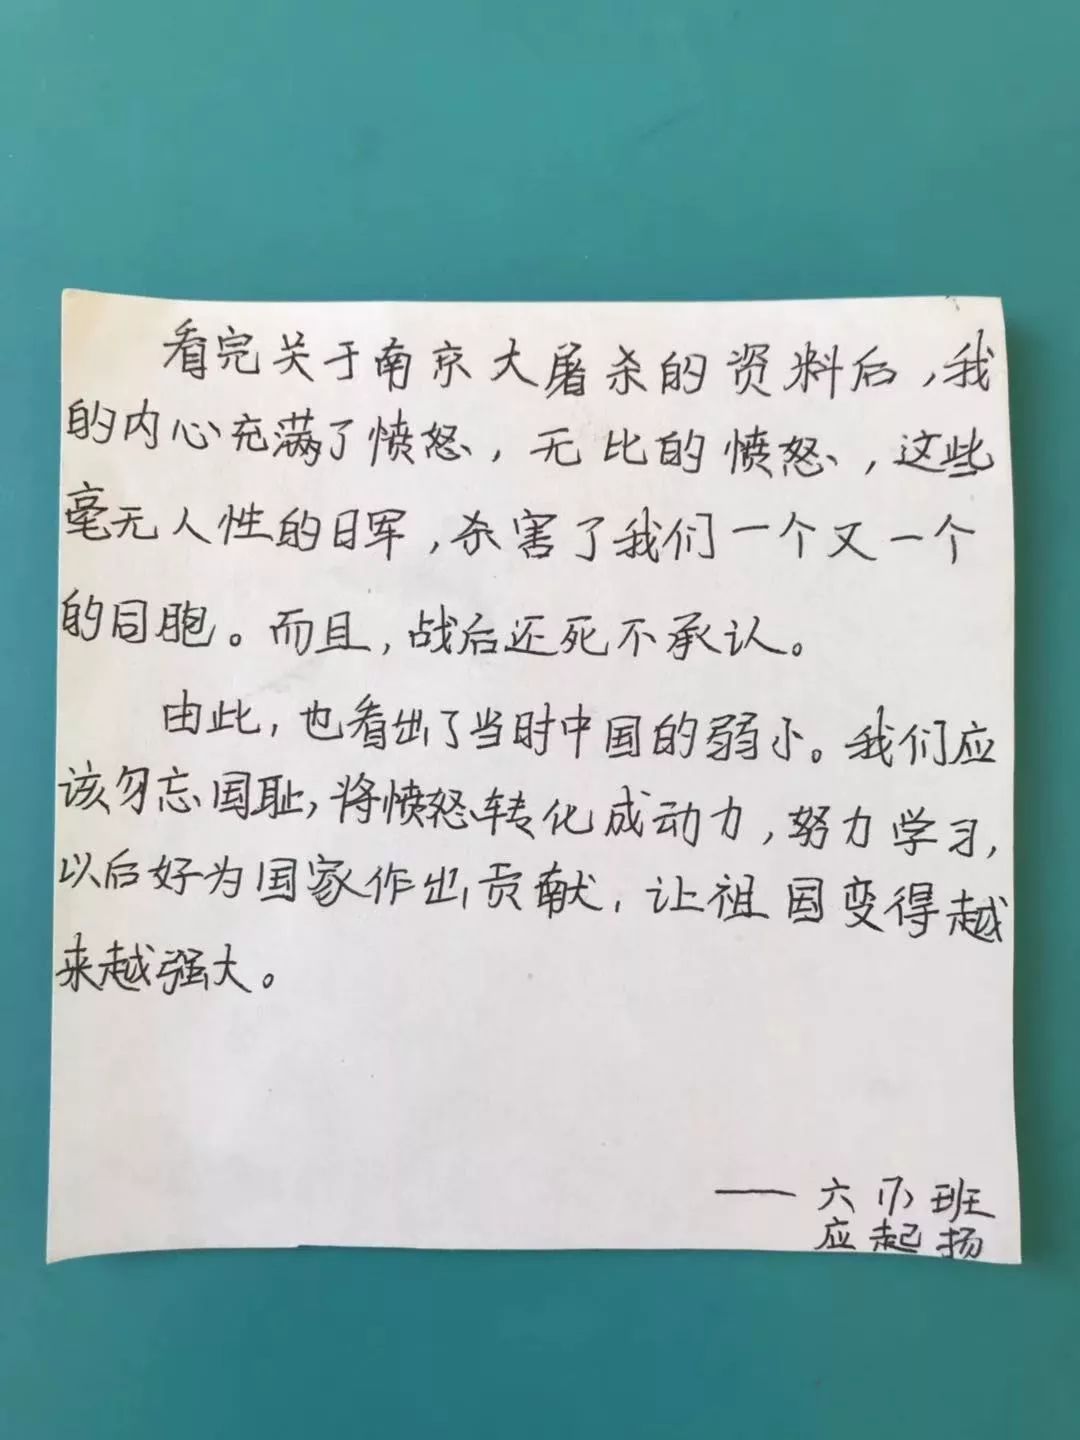 看完关于南京大屠杀的资料后，我
的内心充满了愤怒，无比的愤怒，这些
毫无人性的日军，杀害了我们一个又一个
的同胞。而且，战后还死不承认。
由此，也看出了当时中国的弱小。我们应
该勿忘国耻，将愤怒转化成动力，努力学习，
以后好为国家作出贡献，让祖国变得越
来越强大。
——六(7)班
应起扬